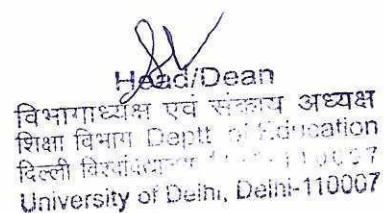 Head/Dean
विभागाध्यक्ष एवं संकाय अध्यक्ष
शिक्षा विभाग Deptt. of Education
दिल्ली
University of Delhi, Delhi-110007